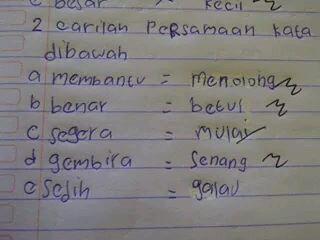 c besar kecil
2 carilah Persamaan kata
dibawah
a membantu = menolong
b benar = betul
c segera = mulai
d gembira = senang
e sedih = galau